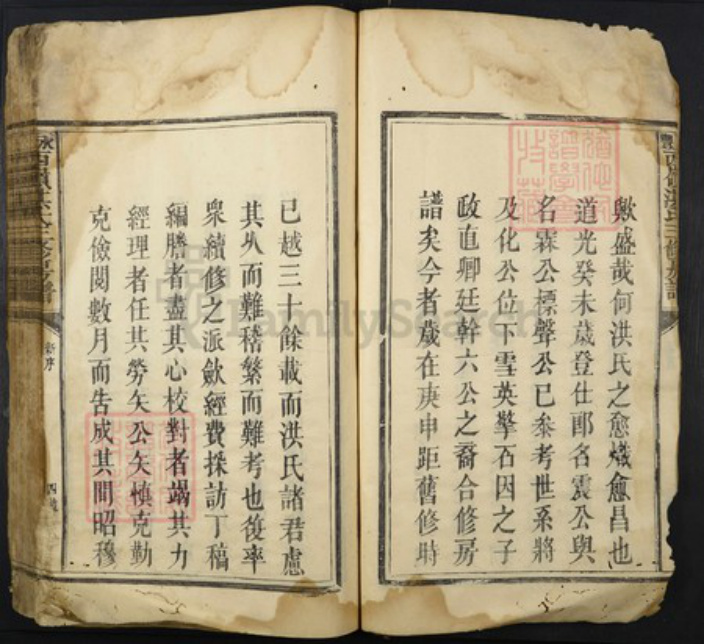 歟盛哉何洪氏之愈熾愈昌也
道光癸未歲登仕郎名震公與
名霖公標聲公已參考世系將
及化公位下雪英擎石因之子
政直卿廷幹六公之裔合修房
譜矣今者歲在庚申距舊修時
已越三十餘載而洪氏諸君慮
其久而難稽繁而難考也復率
眾續修之派斂經費採訪丁稿
編謄者盡其心校對者竭其力
經理者任其勞矢公矢慎克勤
克儉閱數月而告成其間昭穆
新序
FamilySearch